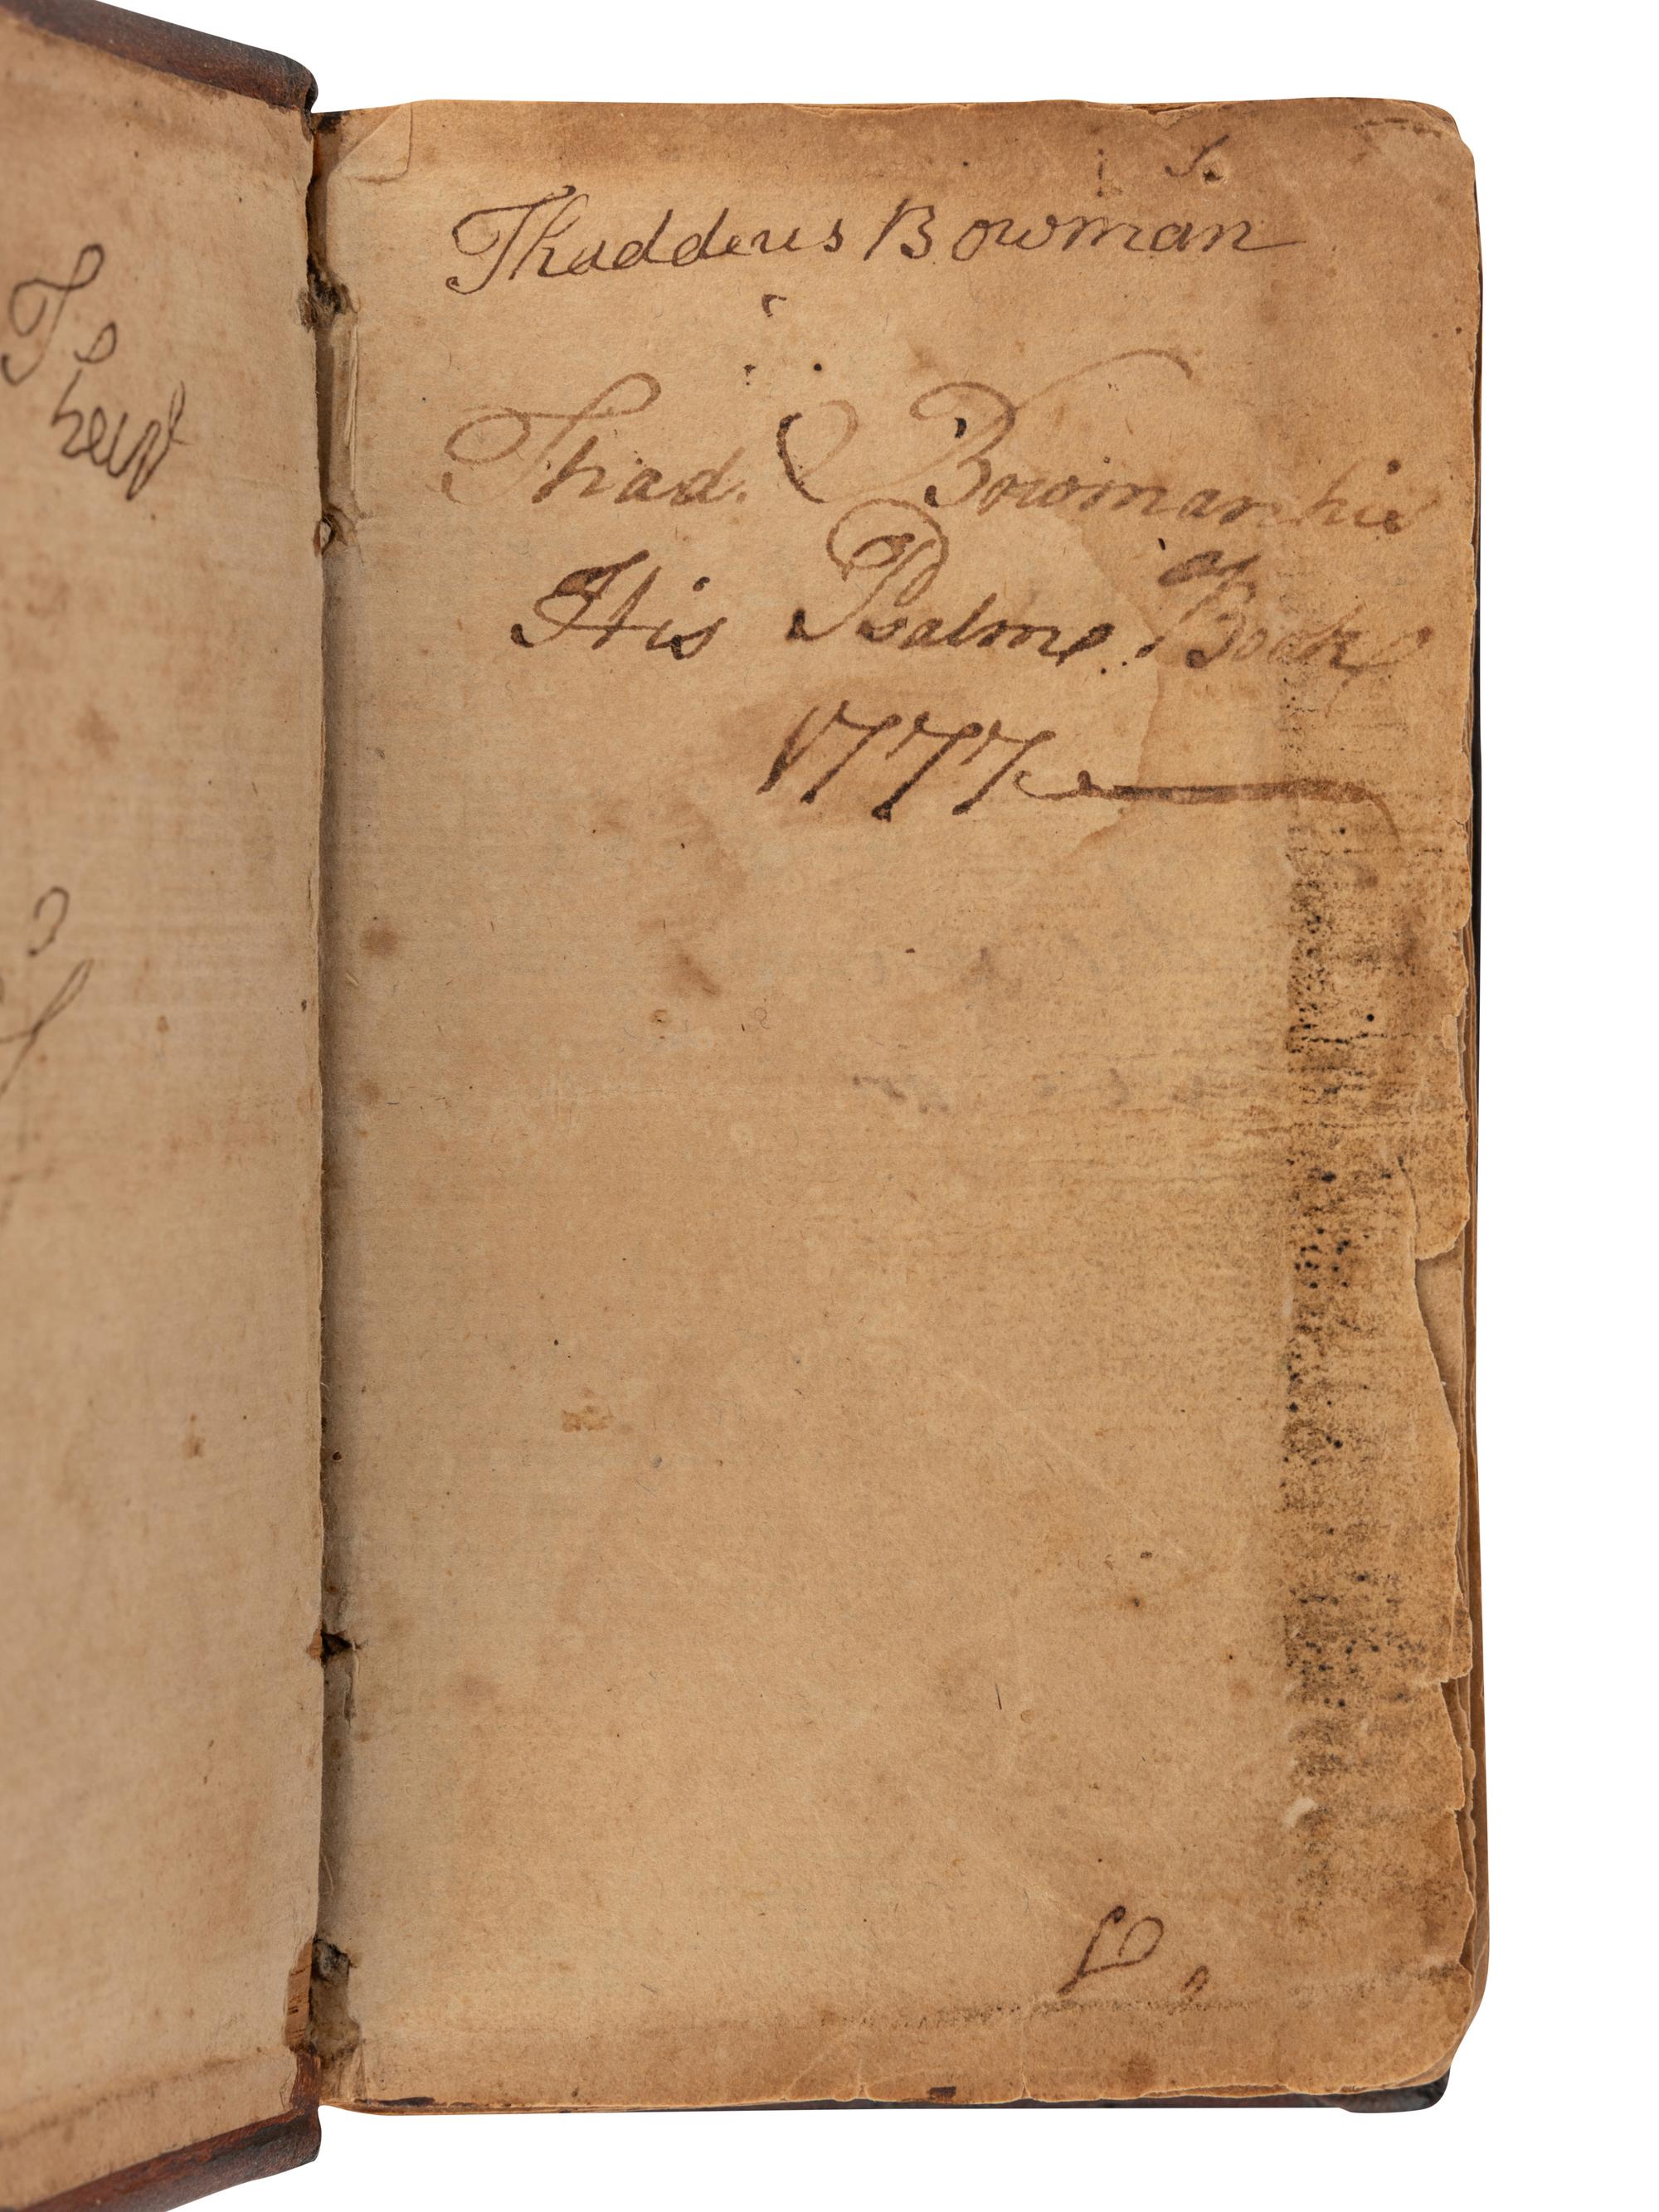 Thaddeus Bowman
Thad. Bowman his
His Psalm Book
1777